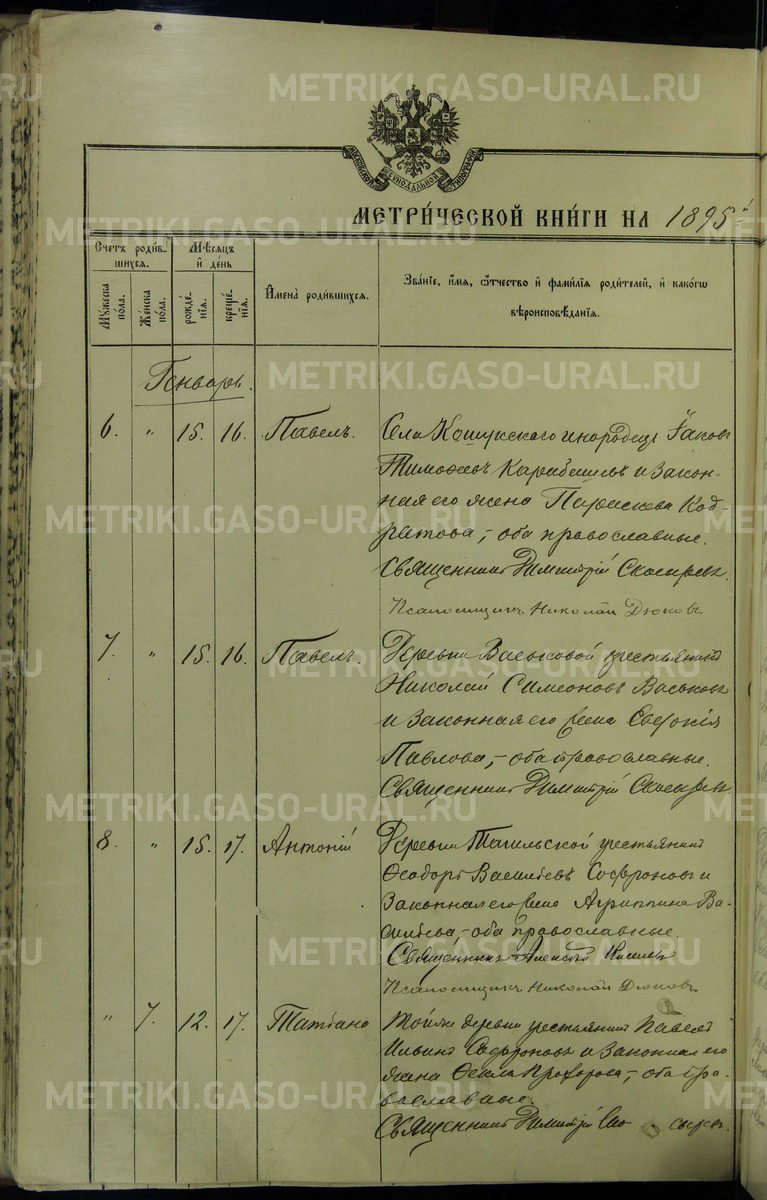 METRIKI.GASO-URAL.RU
МОСКОВСКОЙ СѴНОДАЛЬНОЙ ТИПОГРАФІИ
МЕТРИ́ЧЕСКОЙ КНИ́ГИ НА 1895й
Счетъ роди́вшихся.
Мѣ́сяцъ и́ де́нь
Мꙋ́жеска по́ла.
Же́нска по́ла.
рожде́нїѧ.
креще́нїѧ.
И҆мена̀ роди́вшихсѧ.
Зва́нїе, и́мѧ, ѻ҆́тчество и҆ фами́лїѧ роди́телей, и҆ како́гѡ
вѣроисповѣ́данїѧ.
Генварь.
6. " 15. 16. Павелъ. Села Кошукскаго инородецъ Iаковъ
Тимофеевъ и закон-
ная его жена Параскева Код-
ратова,- оба православные.
Священникъ Димитрій Скосыревъ
Псаломщикъ Николай Дюковъ.
7. " 15. 16. Павелъ. Деревни Васьковой крестьянинъ
Николай Симеоновъ Васьковъ
и законная его жена Евдокія
Павлова,- оба православные.
Священникъ Димитрій Скосыревъ
8. " 15. 17. Антоній Деревни Тагильской крестьянинъ
Ѳеодоръ Васильевъ Софроновъ и
законная его жена Агриппина Ва-
сильева,- оба православные.
Священникъ Алексій Киселевъ
Псаломщикъ Николай Дюковъ.
" 7. 12. 17. Татіана Той же деревни крестьянинъ Павелъ
Ильинъ Софроновъ и законная его
жена Ѳекла Прохорова,- оба пра-
вославные.
Священникъ Димитрій Ско сыревъ.